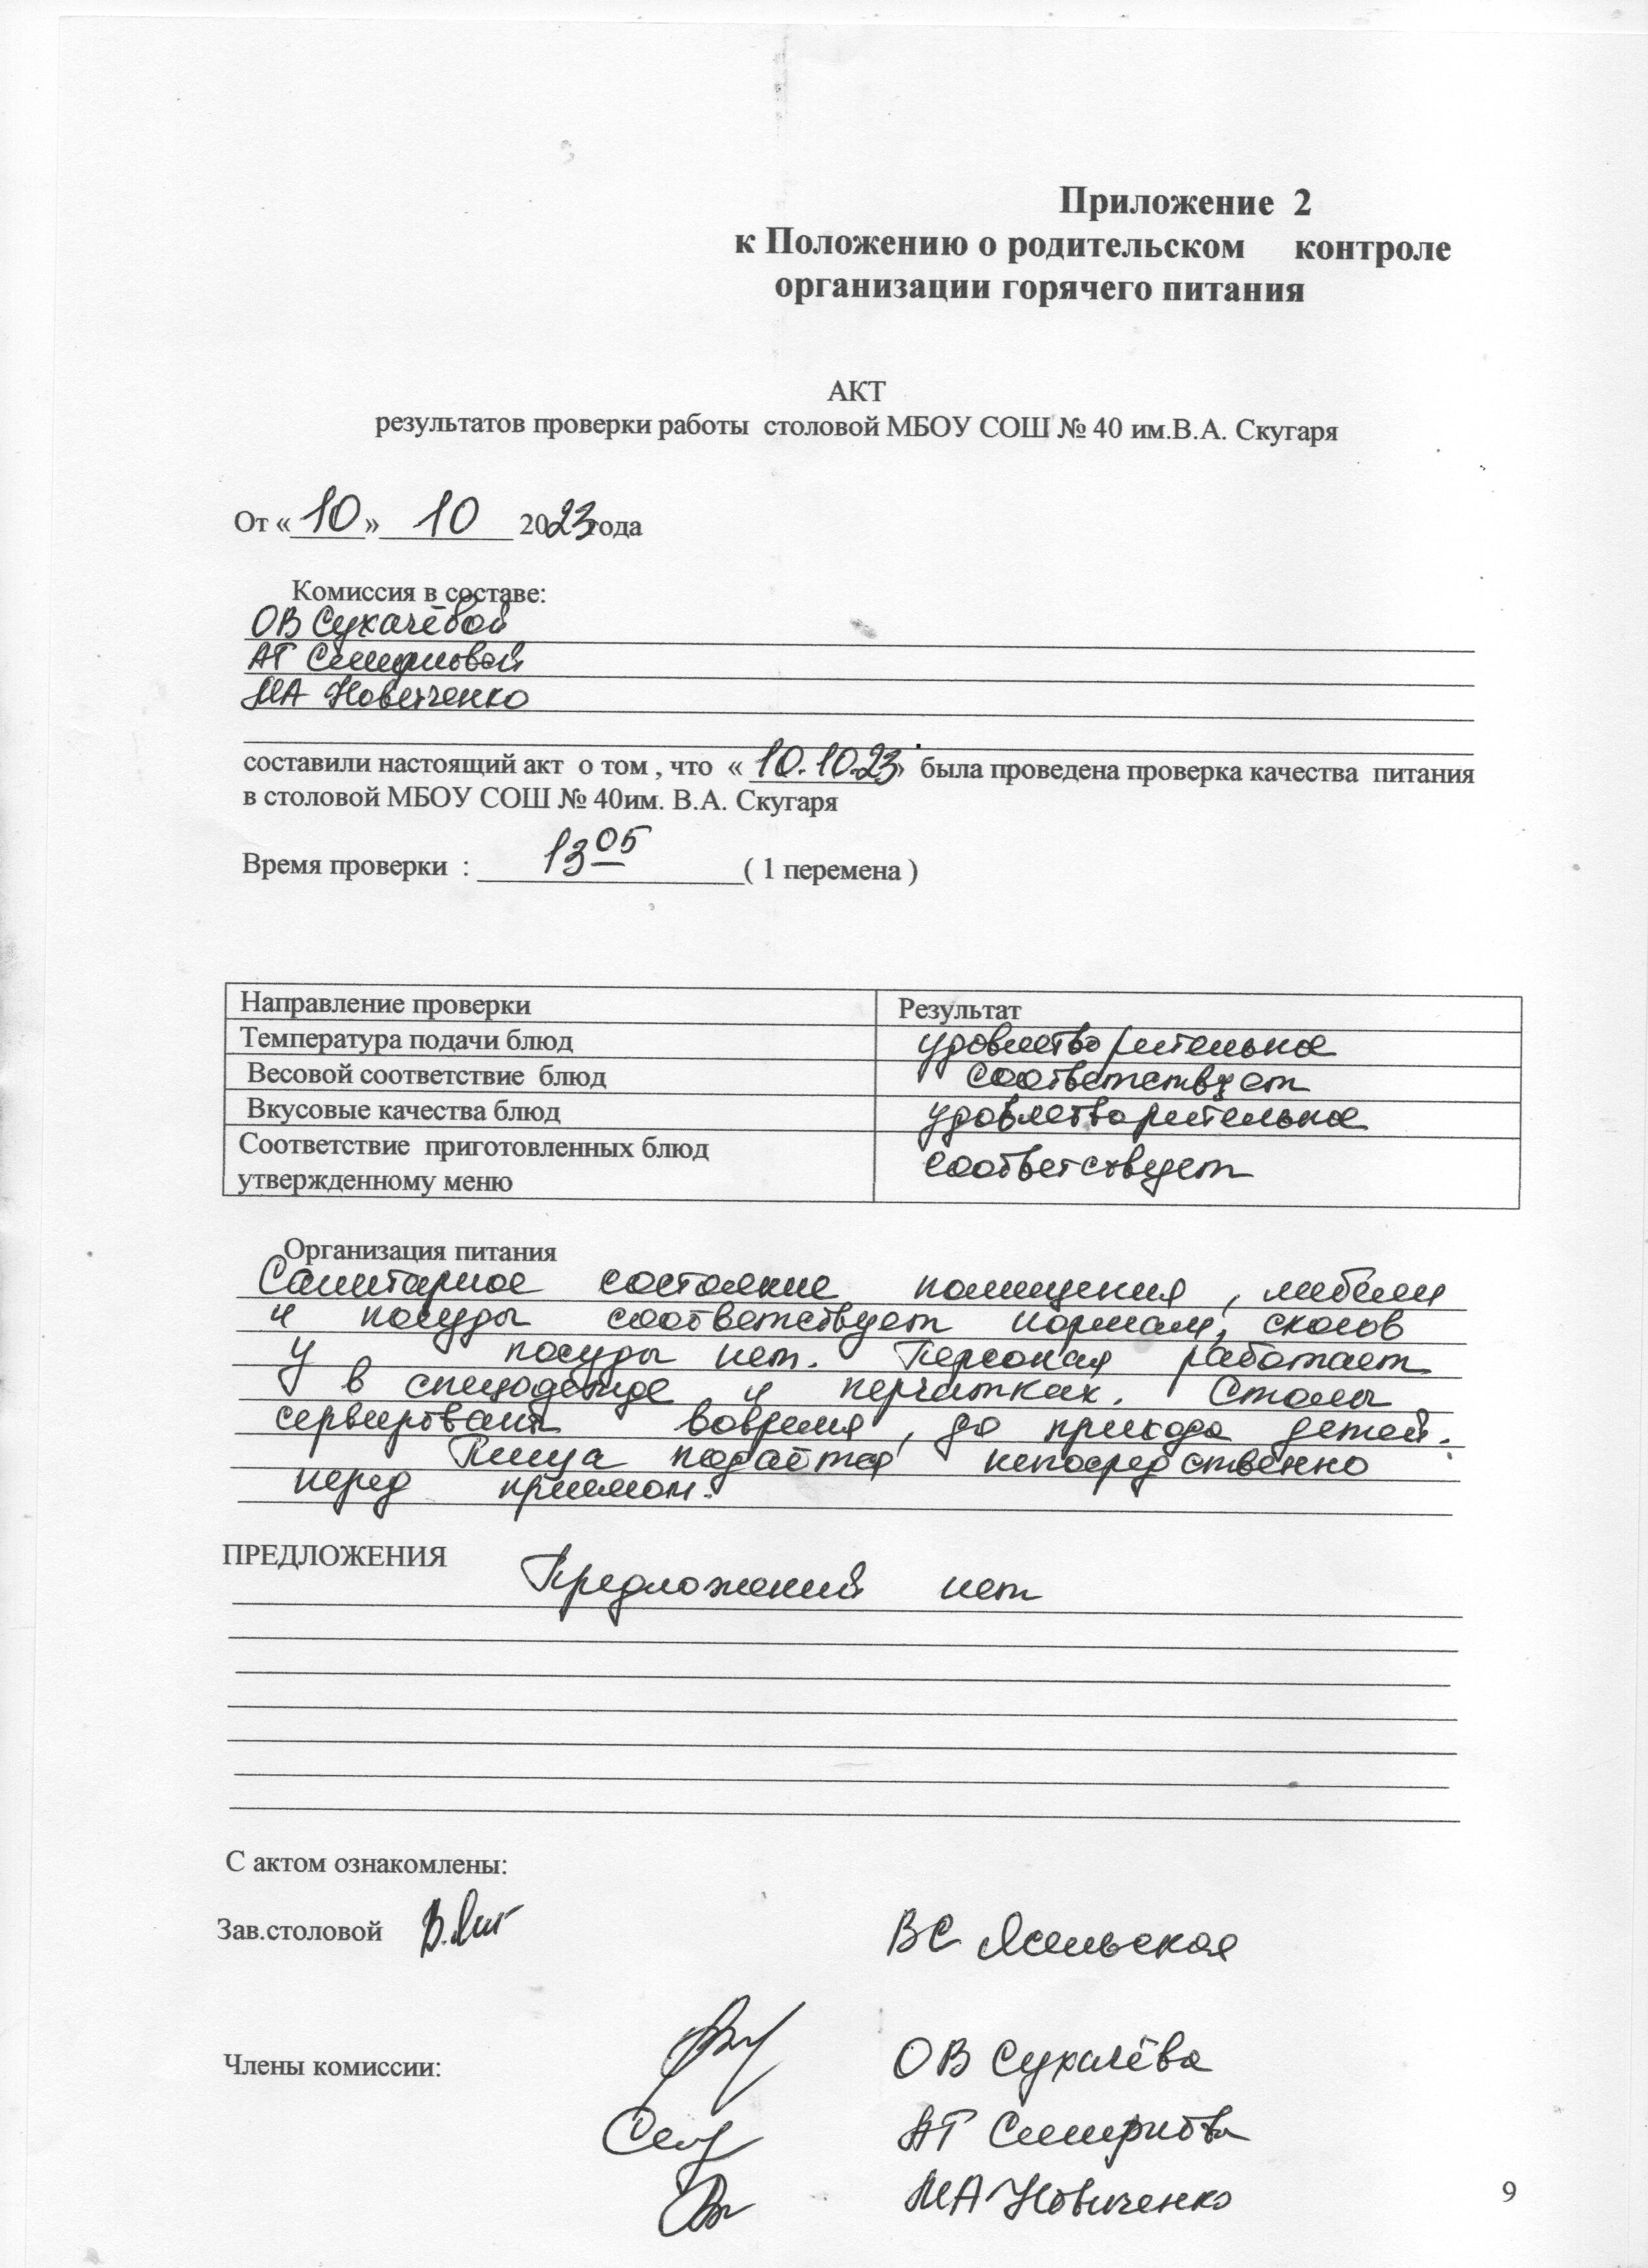 Приложение 2
к Положению о родительском контроле
организации горячего питания
АКТ
результатов проверки работы столовой МБОУ СОШ № 40 им.В.А. Скугаря
От «10» 10 2023года
Комиссия в составе:
ОВ Сухачёвой
АТ Смирновой
МА Новиченко
составили настоящий акт о том , что « 10.10.23» была проведена проверка качества питания
в столовой МБОУ СОШ № 40им. В.А. Скугаря
Время проверки : 13 05 ( 1 перемена )
Направление проверки Результат
Температура подачи блюд удовлетворительное
Весовой соответствие блюд соответствует
Вкусовые качества блюд удовлетворительное
Соответствие приготовленных блюд соответствует
утвержденному меню
Организация питания
Санитарное состояние помещения, мебели
и посуды соответствует нормам, сколов
у посуды нет. Персонал работает
в спецодежде и перчатках. Столы
сервированы вовремя, до прихода детей.
Пища подаётся непосредственно
перед приемом.
ПРЕДЛОЖЕНИЯ
Предложений нет
С актом ознакомлены:
Зав.столовой ВС
Члены комиссии: ОВ Сухачёва
АТ Смирнова
МА Новиченко
9